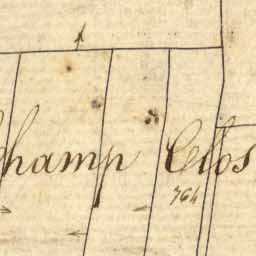 Champ Clos
764